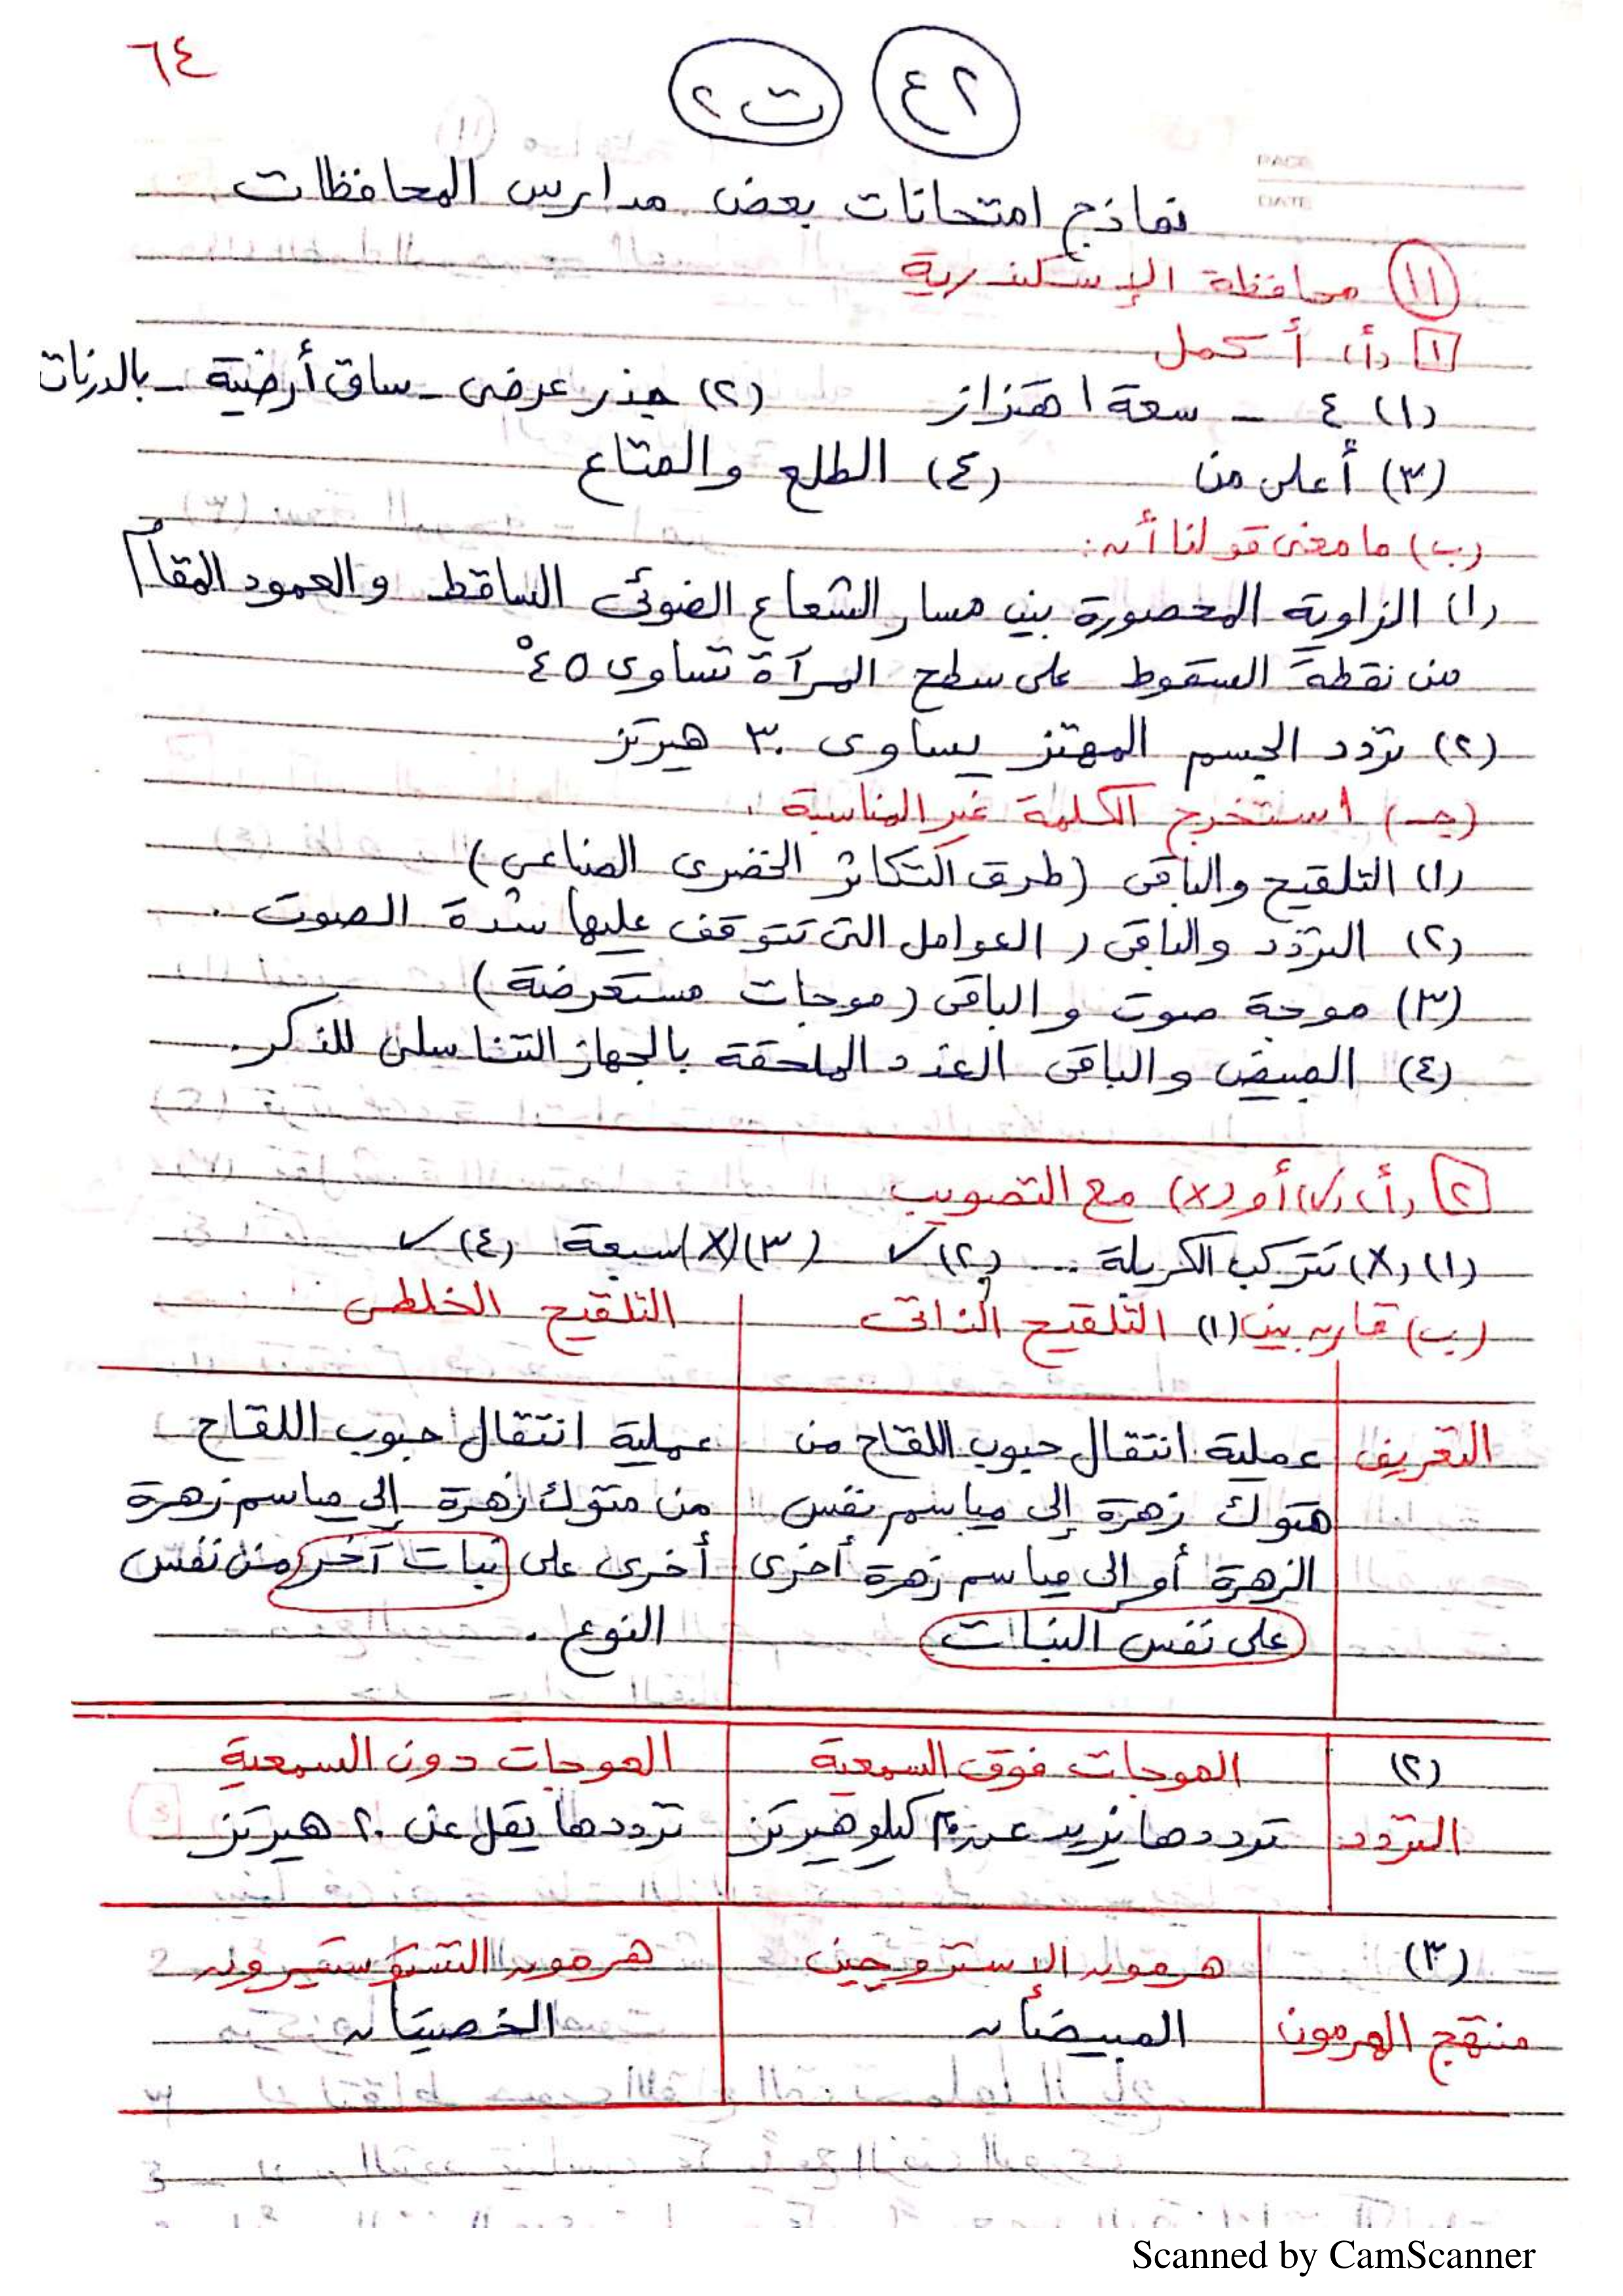 ٦٤
٢ع ت٢
PAGE
DATE
نماذج امتحانات بعض مدارس المحافظات
(١١) محافظة الإسكندرية
[١] (أ) أكمل
(١) ٤ - سعة اهتزاز (٢) جذر عرضى - ساق أرضية - بالدرنات
(٣) أعلى من (٤) الطلع والمتاع
(ب) ما معنى قولنا أن:
(١) الزاوية المحصورة بين مسار الشعاع الضوئى الساقط والعمود المقام
من نقطة السقوط على سطح المرآة تساوى ٤٥°
(٢) تردد الجسم المهتز يساوى ٣٠ هيرتز
(جـ) استخرج الكلمة غير المناسبة.
(١) التلقيح والباقى (طرق التكاثر الخضرى الصناعى)
(٢) التردد والباقى (العوامل التى تتوقف عليها شدة الصوت.
(٣) موجة صوت والباقى (موجات مستعرضة)
(٤) المبيض والباقى الغدد الملحقة بالجهاز التناسلى للذكر.
[٢] (أ) (✓) أو (x) مع التصويب
(١) (x) تتركب الكربلة ... (٢) ✓ (٣) (x) سبعة (٤) ✓
(ب) قارن بين (١) التلقيح الذاتى التلقيح الخلطى
التعريف عملية انتقال حبوب اللقاح من عملية انتقال حبوب اللقاح
متوك زهرة إلى مياسم نفس من متوك زهرة إلى مياسم زهرة
الزهرة أو إلى مياسم زهرة أخرى أخرى على نبات آخر من نفس
على نفس النبات النوع.
(٢) الموجات فوق السمعية الموجات دون السمعية
التردد ترددها يزيد عن ٢٠ كيلو هيرتز ترددها يقل عن ٢٠ هيرتز
(٣) هرمون الاستروجين هرمون التستوستيرون
منتج الهرمون المبيضان الخصيتان
Scanned by CamScanner